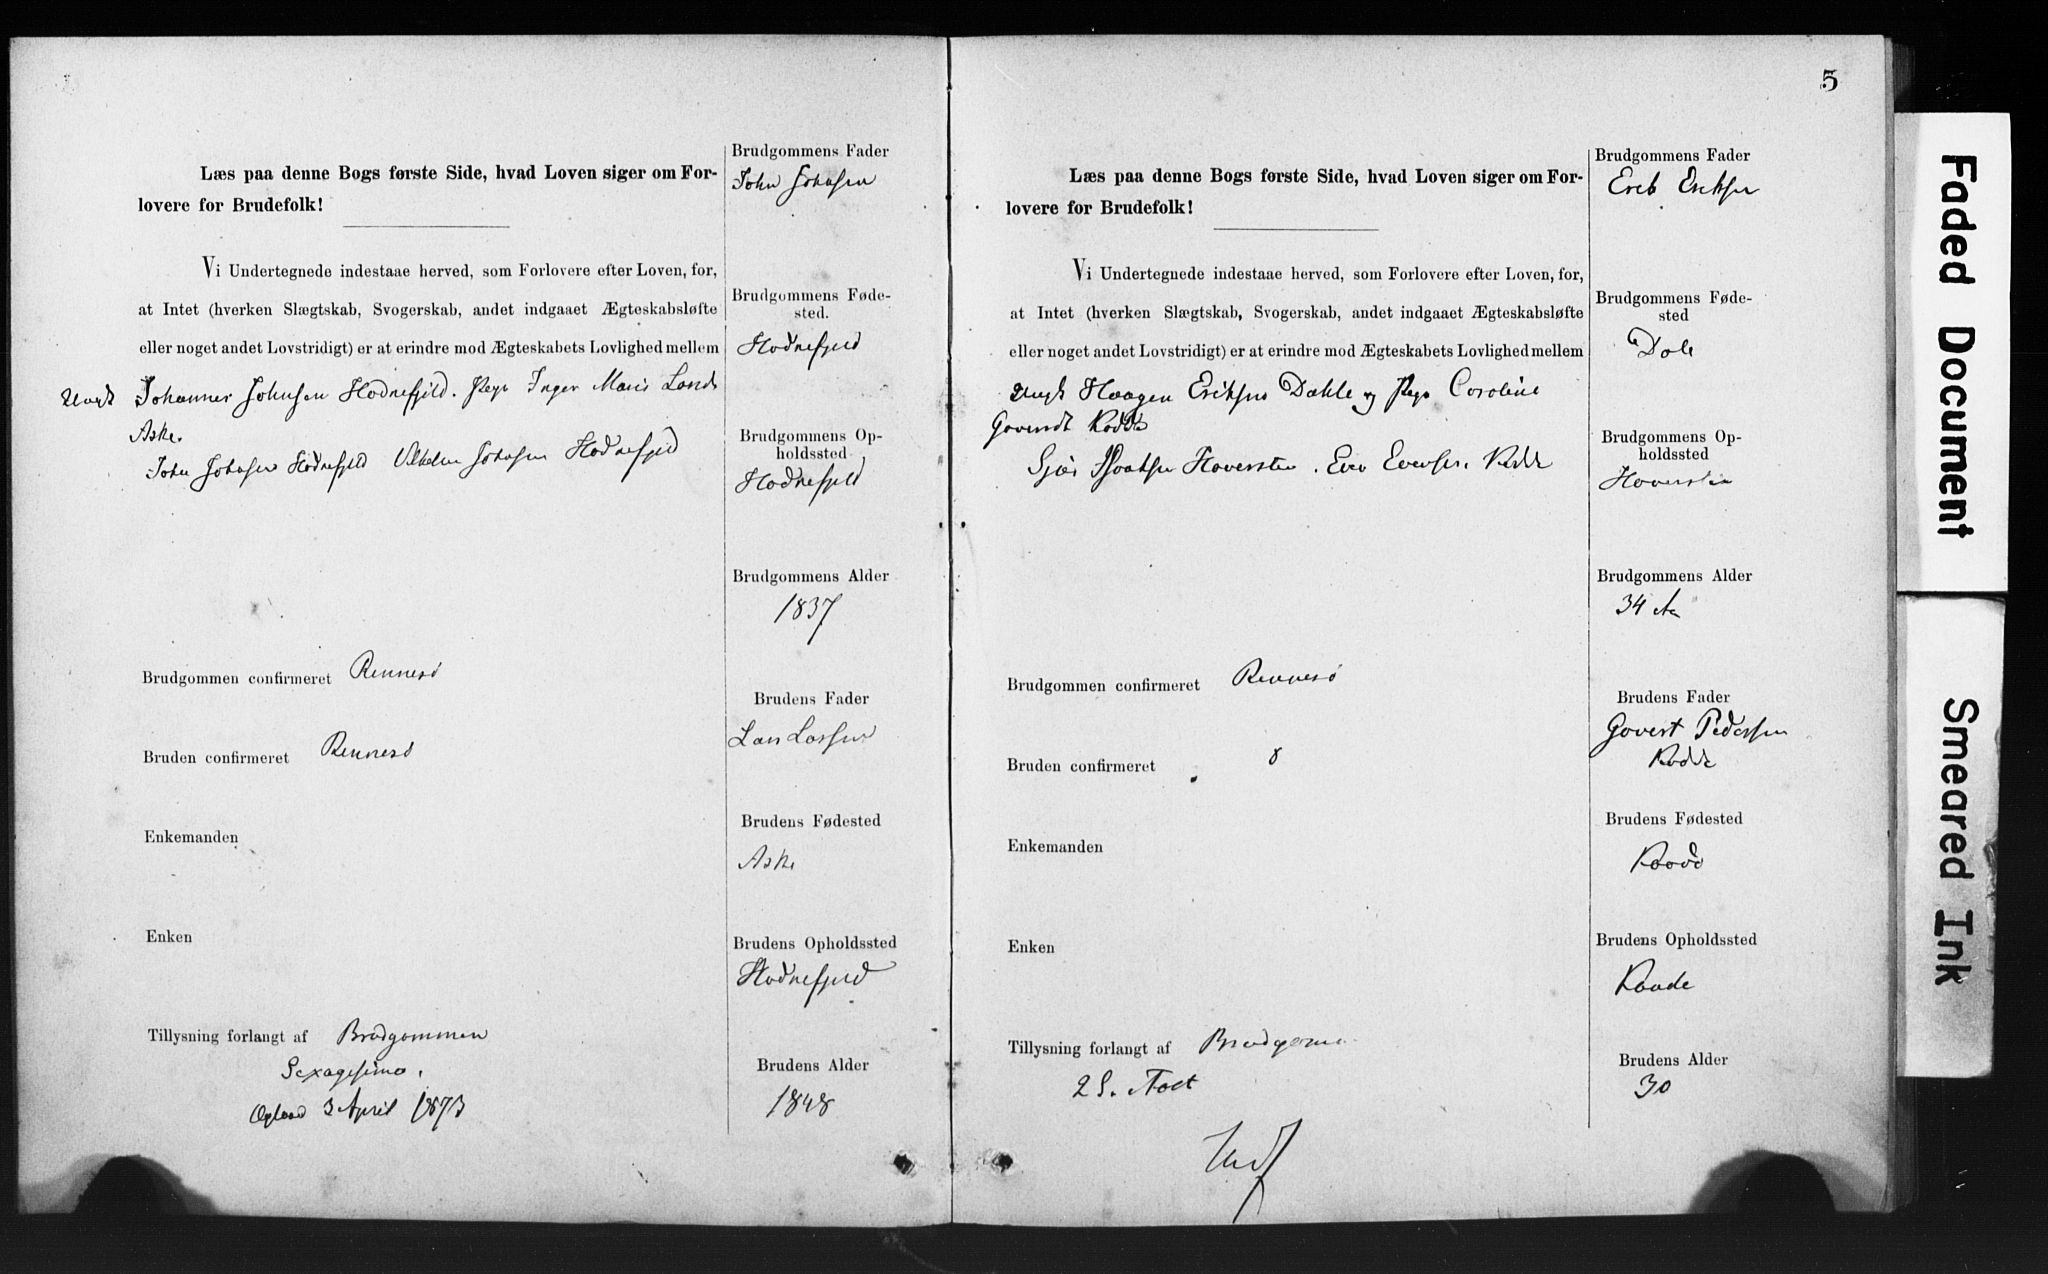 Læs paa denne Bogs første Side, hvad Loven siger om For-
lovere for Brudefolk!
Vi Undertegnede indestaae herved, som Forlovere efter Loven, for,
at Intet (hverken Slægtskab, Svogerskab, andet indgaaet Ægteskabsløfte
eller noget andet Lovstridigt) er at erindre mod Ægteskabets Lovlighed mellem
Ungk Johannes Johnsen Hodnefjeld. Pige Inger Marie Lards
Aske.
John Johnsen Hodnefjeld Vilhelm Johnsen Hodnefjeld
Brudgommen confirmeret Rennesö
Bruden confirmeret Rennesö
Enkemanden
Enken
Tillysning forlangt af Brudgommen
Sexagesima.
3 April 1873
Brudgommens Fader
John Johnsen
Brudgommens Føde-
sted.
Hodnefjeld
Brudgommens Op-
holdssted
Hodnefjeld
Brudgommens Alder
1837
Brudens Fader
Lars Larsen
Brudens Fødested
Aske
Brudens Opholdssted
Hodnefjeld
Brudens Alder
1848
5
Læs paa denne Bogs første Side, hvad Loven siger om For-
lovere for Brudefolk!
Vi Undertegnede indestaae herved, som Forlovere efter Loven, for,
at Intet (hverken Slægtskab, Svogerskab, andet indgaaet Ægteskabsløfte
eller noget andet Lovstridigt) er at erindre mod Ægteskabets Lovlighed mellem
Ungk Haagen Eriksen Dahle og Pige Caroline
Govertsdt Rodde
Hoversten. Even Evensen. Rodde
Brudgommen confirmeret Rennesö
Bruden confirmeret
Enkemanden
Enken
Tillysning forlangt af Brudgom
2 S. Fast
Brudgommens Fader
Erik Eriksen
Brudgommens Føde-
sted
Dale
Brudgommens Op-
holdssted
Hoversten
Brudgommens Alder
34 Aar
Brudens Fader
Govert Pedersen
Rodde
Brudens Fødested
Brudens Opholdssted
Brudens Alder
30
Faded Document
Smeared Ink